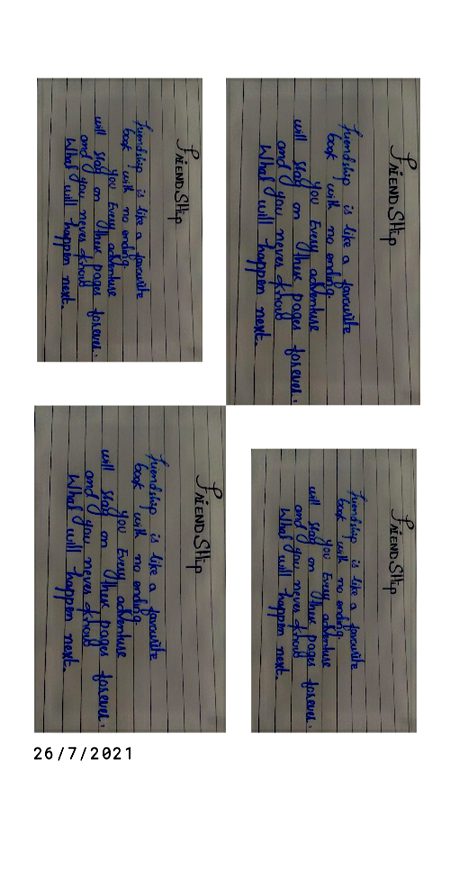 FRIENDSHip
Friendship is like a favourite
book, with no ending.
you Every adventure
will stay on their pages forever.
and you never know
What will happen next.
FRIENDSHip
Friendship is like a favourite
book, with no ending.
you Every adventure
will stay on their pages forever.
and you never know
What will happen next.
FRIENDSHip
Friendship is like a favourite
book, with no ending.
you Every adventure
will stay on their pages forever.
and you never know
What will happen next.
FRIENDSHip
Friendship is like a favourite
book, with no ending.
you Every adventure
will stay on their pages forever.
and you never know
What will happen next.
26/7/2021